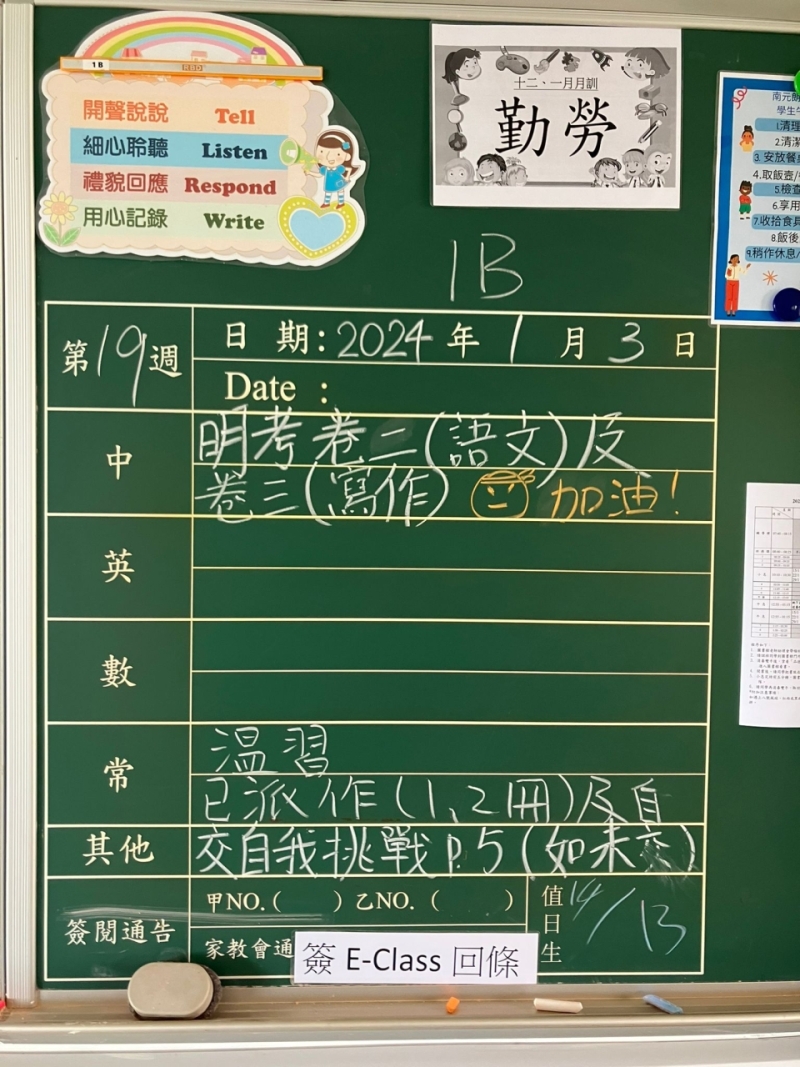 1B
開聲說說 Tell
細心聆聽 Listen
禮貌回應 Respond
用心記錄 Write
十二、一月月訓
勤勞
南元朗
學生午
1.清理
2.清潔
3.安放餐
4.取飯壺/
5.檢查
6.享用
7.收拾食具
8.飯後
9.稍作休息/
1B
第19週
日期:2024年1月3日
Date :
中
明考卷二(語文)及
卷三(寫作) 加油!
英
數
常
溫習
已派作(1,2冊)及自
其他
交自我挑戰P.5(如未交)
簽閱通告
甲NO.( ) 乙NO. ( )
家教會通
簽 E-Class 回條
值日生
14/13